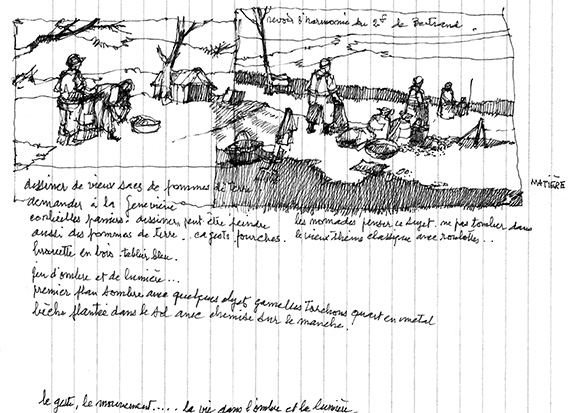 revoir l'harmonie du de Bertrand.
MATIÈRE
dessiner de vieux sacs de pommes de terre
demander à la Geneviève
corbeilles paniers. dessiner, peut être peindre
aussi des pommes de terre. cageots fourches.
brouette en bois tablier bleu.
les nomades penser ce sujet. ne pas tomber dans
le vieux thème classique avec roulottes..
jeu d'ombre et de lumière...
premier plan sombre avec quelques objets gamelles torchons quart en métal
bêche plantée dans le sol avec chemise sur le manche.
le geste, le mouvement.... la vie dans l'ombre et la lumière.